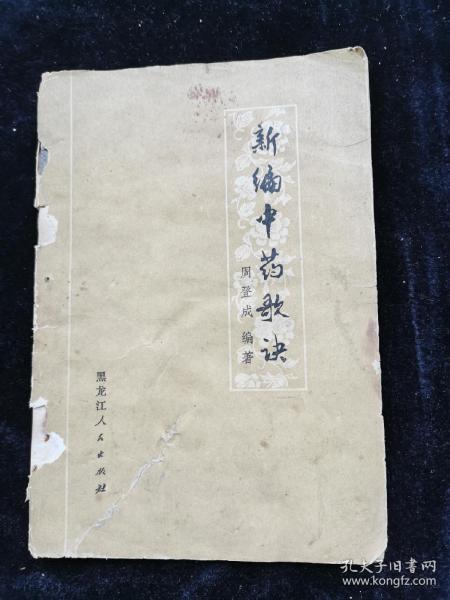 新编中药歌诀
周登成 编著
黑龙江人民出版社
孔夫子旧书网
www.kongfz.com